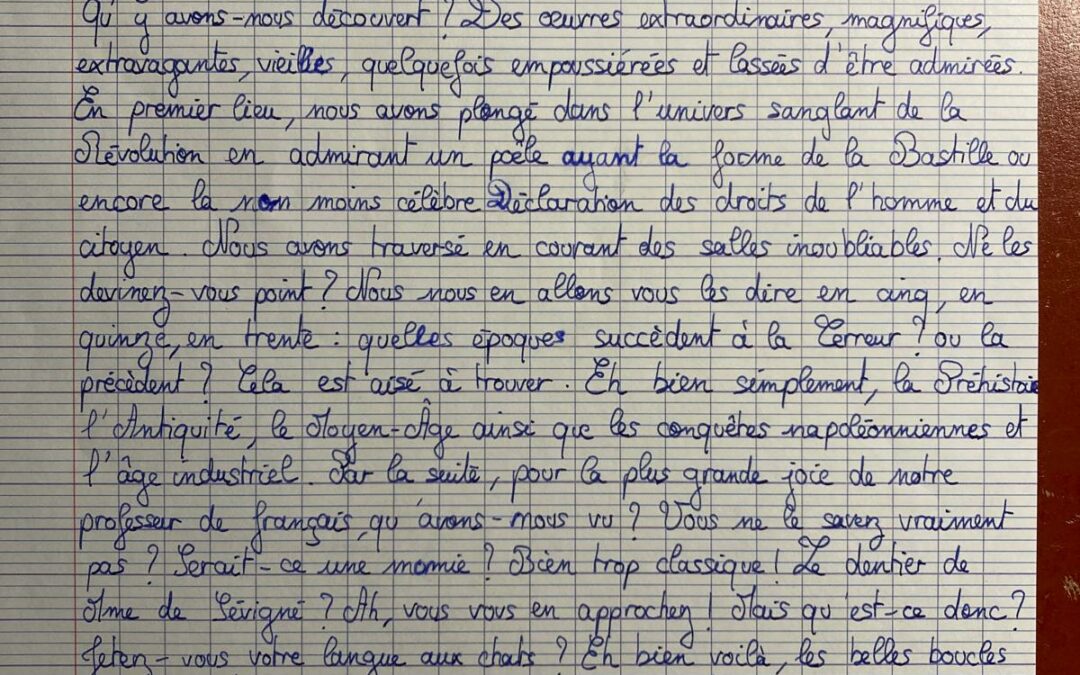 Qu'y avons-nous découvert ? Des œuvres extraordinaires, magnifiques,
extravagantes, vieilles, quelquefois empoussiérées et lassées d'être admirées.
En premier lieu, nous avons plongé dans l'univers sanglant de la
Révolution en admirant un poêle ayant la forme de la Bastille ou
encore la non moins célèbre Déclaration des droits de l'homme et du
citoyen. Nous avons traversé en courant des salles inoubliables. Ne les
devinez-vous point ? Nous nous en allons vous les dire en cinq, en
quinze, en trente : quelles époques succèdent à la Terreur ? ou la
précèdent ? Cela est aisé à trouver. Eh bien simplement, la Préhistoire
l'Antiquité, le Moyen-Âge ainsi que les conquêtes napoléonniennes et
l'âge industriel. Par la suite, pour la plus grande joie de notre
professeur de français, qu'avons-nous vu ? Vous ne le savez vraiment
pas ? Serait-ce une momie ? Bien trop classique ! Le dentier de
Mme de Sévigné ? Ah, vous vous en approchez ! Mais qu'est-ce donc ?
Jetez-vous votre langue aux chats ? Eh bien voilà, les belles boucles